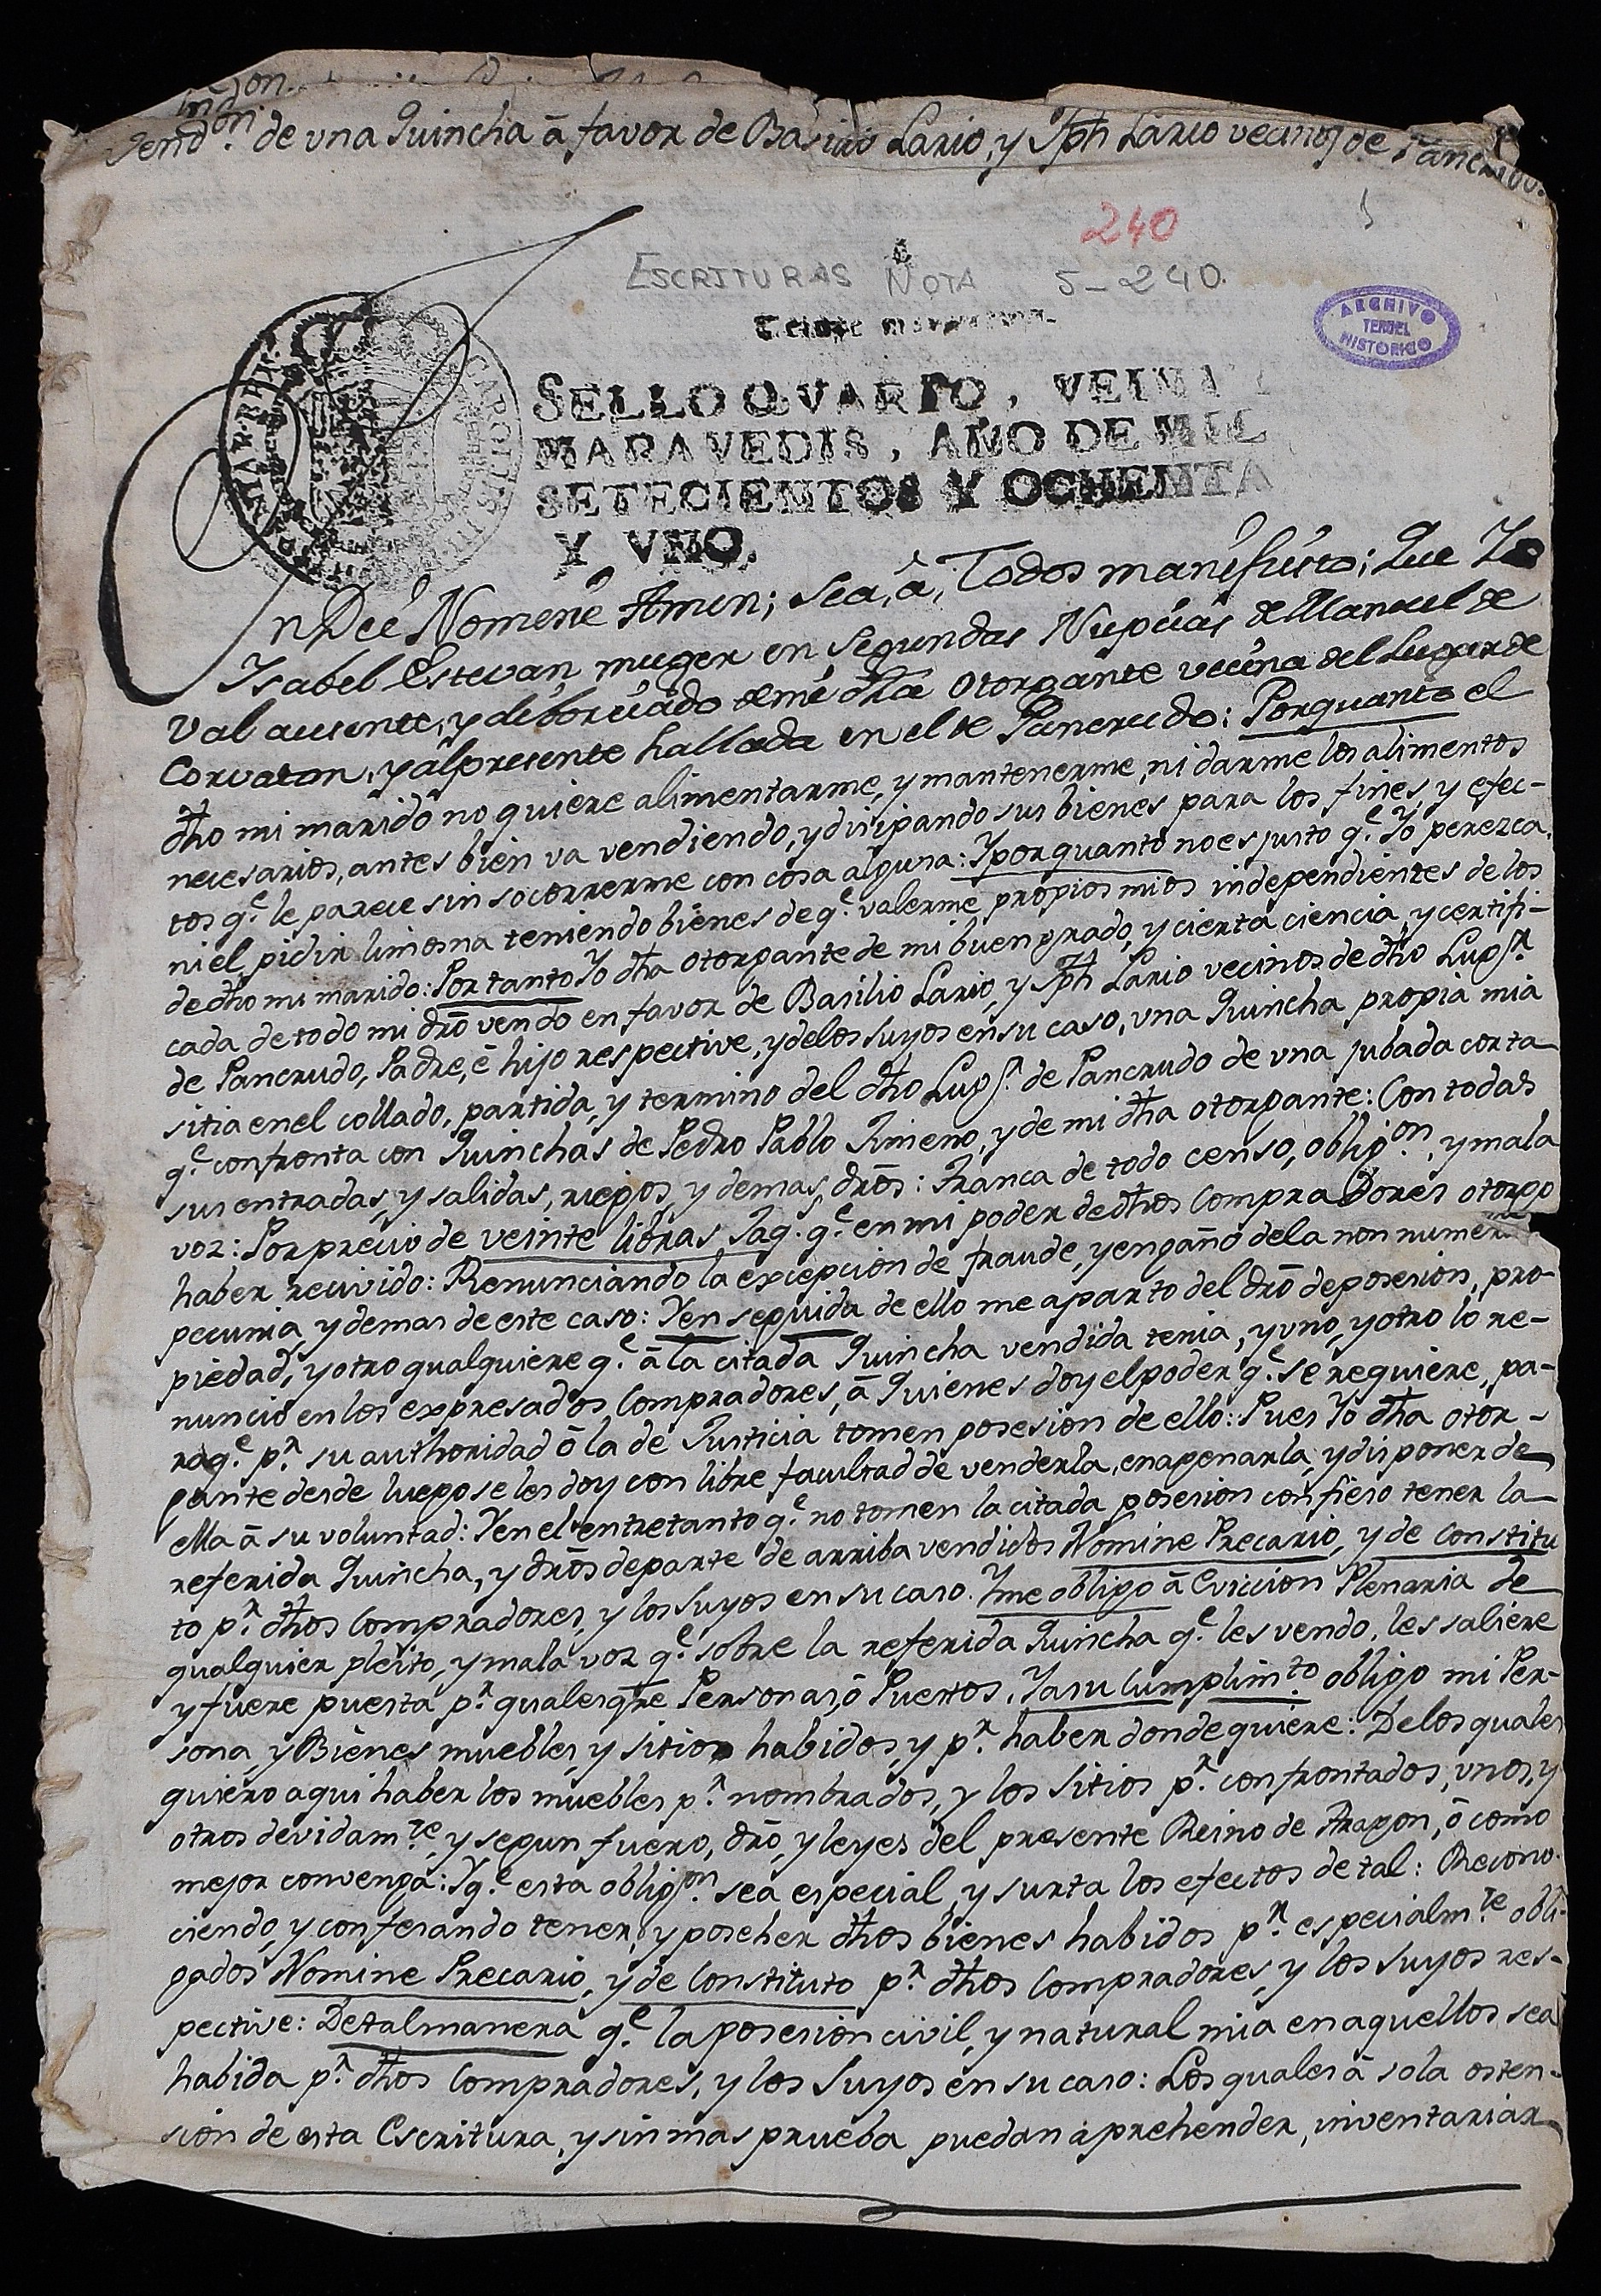 Vendon. de vna Quincha â favor de Basilio Lario, y Jph Lario vecinos de Pancrudo.
240
ESCRITURAS NOTA 5-240.
ARCHIVO
TERUEL
HISTORICO
SELLO QVARTO, VEINTE
MARAVEDIS, AÑO DE MIL
SETECIENTOS Y OCHENTA
Y VNO.
In Dei Nomine Amen; sea, â, Todos manifiesto; Que Yo
Isabel Estevan muger en segundas Nupcias de Manuel de
Val ausente, y diborciado de mi dha otorgante vecina del Lugar de
Corvaton, y alpresente hallada en el de Pancrudo: Porquanto el
dho mi marido no quiere alimentarme, y mantenerme, ni darme los alimentos
necesarios, antes bien va vendiendo, y disipando sus bienes para los fines, y efec-
tos qe. le parece sin socorrerme con cosa alguna: Yporquanto no es justo qe. Yo perezca,
ni el pidir limosna teniendo bienes de qe. valerme propios mios independientes de los
de dho mi marido: Por tanto Yo dha otorgante de mi buen grado, y cierta ciencia, y certifi-
cada de todo mi dro vendo en favor de Basilio Lario, y Jph Lario vecinos de dho Lugr.
de Pancrudo, Padre, è hijo respective, y delos suyos en su caso, vna Quincha propia mia
sitia en el collado, partida, y termino del dho Lugr. de Pancrudo de vna jubada corta
qe. confronta con Quinchas de Pedro Pablo Ximeno, y de mi dha otorgante: Con todas
sus entradas, y salidas, riegos, y demas dros: Franca de todo censo, obligon. y mala
voz: Por precio de veinte libras Jaq. qe. en mi poder de dhos Compradores otorgo
haber recivido: Renunciando la excepcion de fraude, y engaño de la non numerata
pecunia, y demas de este caso: Yen seguida de ello me aparto del dro de posesion, pro-
piedad, y otro qualquiere qe. â la citada Quincha vendida tenia, y vno, y otro lo re-
nuncio en los expresados Compradores, â Quienes doy el poder qe. se requiere, pa-
raqe. pr. su authoridad ô la de Justicia tomen posesion de ello: Pues Yo dha otor-
gante desde luego se les doy con libre facultad de venderla, enagenarla, y disponer de
ella â su voluntad: Yen el entretanto qe. no tomen la citada posesion confieso tener la
referida Quincha, y dros de parte de arriba vendidos Nomine Precario, y de Constitu
to pr. dhos Compradores, y los Suyos en su caso. Yme obligo â Eviccion Plenaria de
qualquier pleito, y mala voz qe. sobre la referida Quincha qe. les vendo, les saliere
y fuere puesta pr. qualesqre Personas, ô Puestos. Ya su Cumplimto. obligo mi Per-
sona, y Bienes muebles, y sitios habidos, y pr. haber donde quiere: De los quales
quiero aqui haber los muebles pr. nombrados, y los Sitios pr. confrontados, vnos, y
otros devidamte. y segun fuero, dro, y leyes del presente Reino de Aragon, ô como
mejor convenga: Yqe. esta obligon. sea especial, y surta los efectos de tal: Recono-
ciendo, y confesando tener, y poseher dhos bienes habidos pr. especialmte. obli-
gados Nomine Precario, y de Constituto pr. dhos Compradores, y los suyos res-
pective: De tal manera qe. la posesion civil, y natural mia en aquellos sea
habida pr. dhos Compradores, y los Suyos en su caso: Los quales â sola osten-
sion de esta Escritura, y sin mas prueba puedan aprehender, inventariar